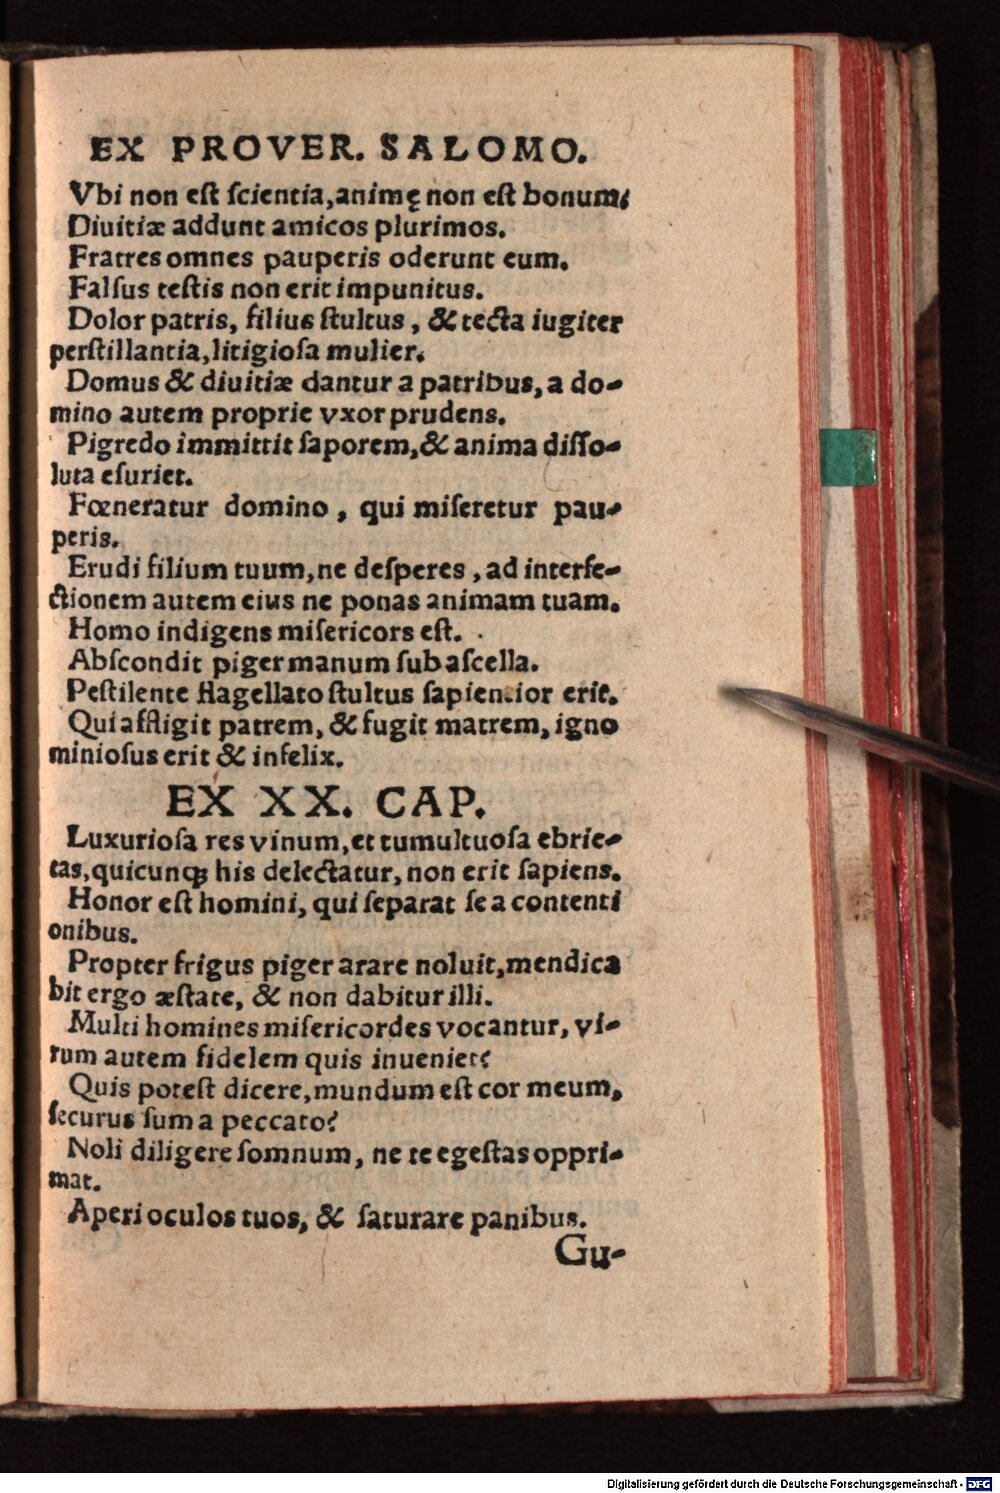 EX PROVER. SALOMO.
Vbi non est scientia, animę non est bonum.
Diuitiæ addunt amicos plurimos.
Fratres omnes pauperis oderunt eum.
Falsus testis non erit impunitus.
Dolor patris, filius stultus, & tecta iugiter
perstillantia, litigiosa mulier.
Domus & diuitiæ dantur a patribus, a do-
mino autem proprie vxor prudens.
Pigredo immittit saporem, & anima disso-
luta esuriet.
Fœneratur domino, qui miseretur pau-
peris.
Erudi filium tuum, ne desperes, ad interfe-
ctionem autem eius ne ponas animam tuam.
Homo indigens misericors est.
Abscondit piger manum sub ascella.
Pestilente flagellato stultus sapientior erit.
Qui affligit patrem, & fugit matrem, igno
miniosus erit & infelix.
EX XX. CAP.
Luxuriosa res vinum, et tumultuosa ebrie-
tas, quicunqꝫ his delectatur, non erit sapiens.
Honor est homini, qui separat se a contenti
onibus.
Propter frigus piger arare noluit, mendica
bit ergo æstate, & non dabitur illi.
Multi homines misericordes vocantur, vi-
rum autem fidelem quis inueniet?
Quis potest dicere, mundum est cor meum,
securus sum a peccato?
Noli diligere somnum, ne te egestas oppri-
mat.
Aperi oculos tuos, & saturare panibus.
Gu-
Digitalisierung gefördert durch die Deutsche Forschungsgemeinschaft - DFG